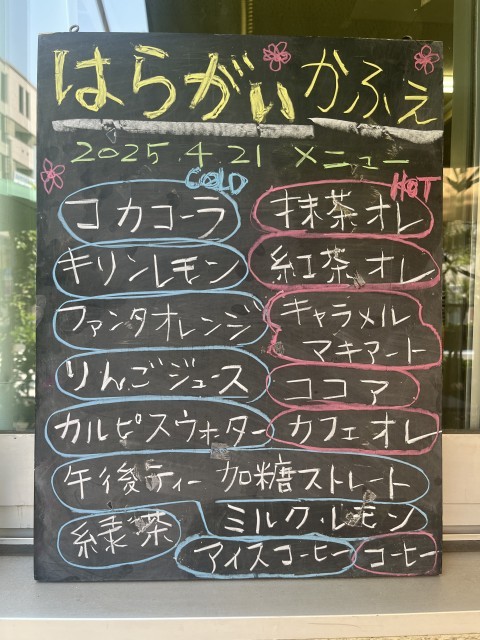 はらがいかふぇ
2025.4.21 メニュー
COLD
HOT
コカコーラ
抹茶オレ
キリンレモン
紅茶オレ
ファンタオレンジ
キャラメル
マキアート
りんごジュース
ココア
カルピスウォーター
カフェオレ
午後ティー 加糖ストレート
ミルク・レモン
緑茶
アイスコーヒー
コーヒー